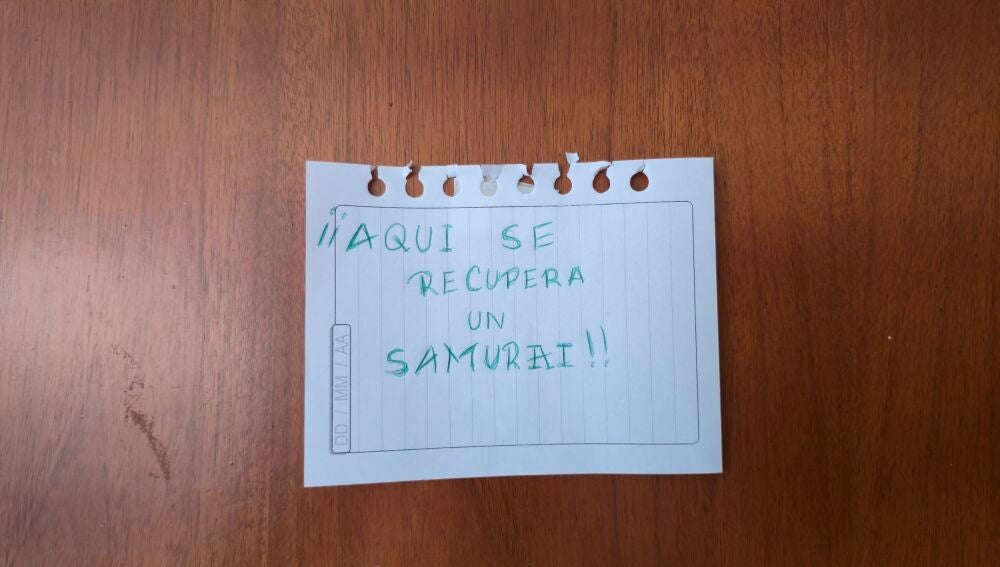 ¡¡AQUI SE
RECUPERA
UN
SAMURAI!!
DD / MM / AA